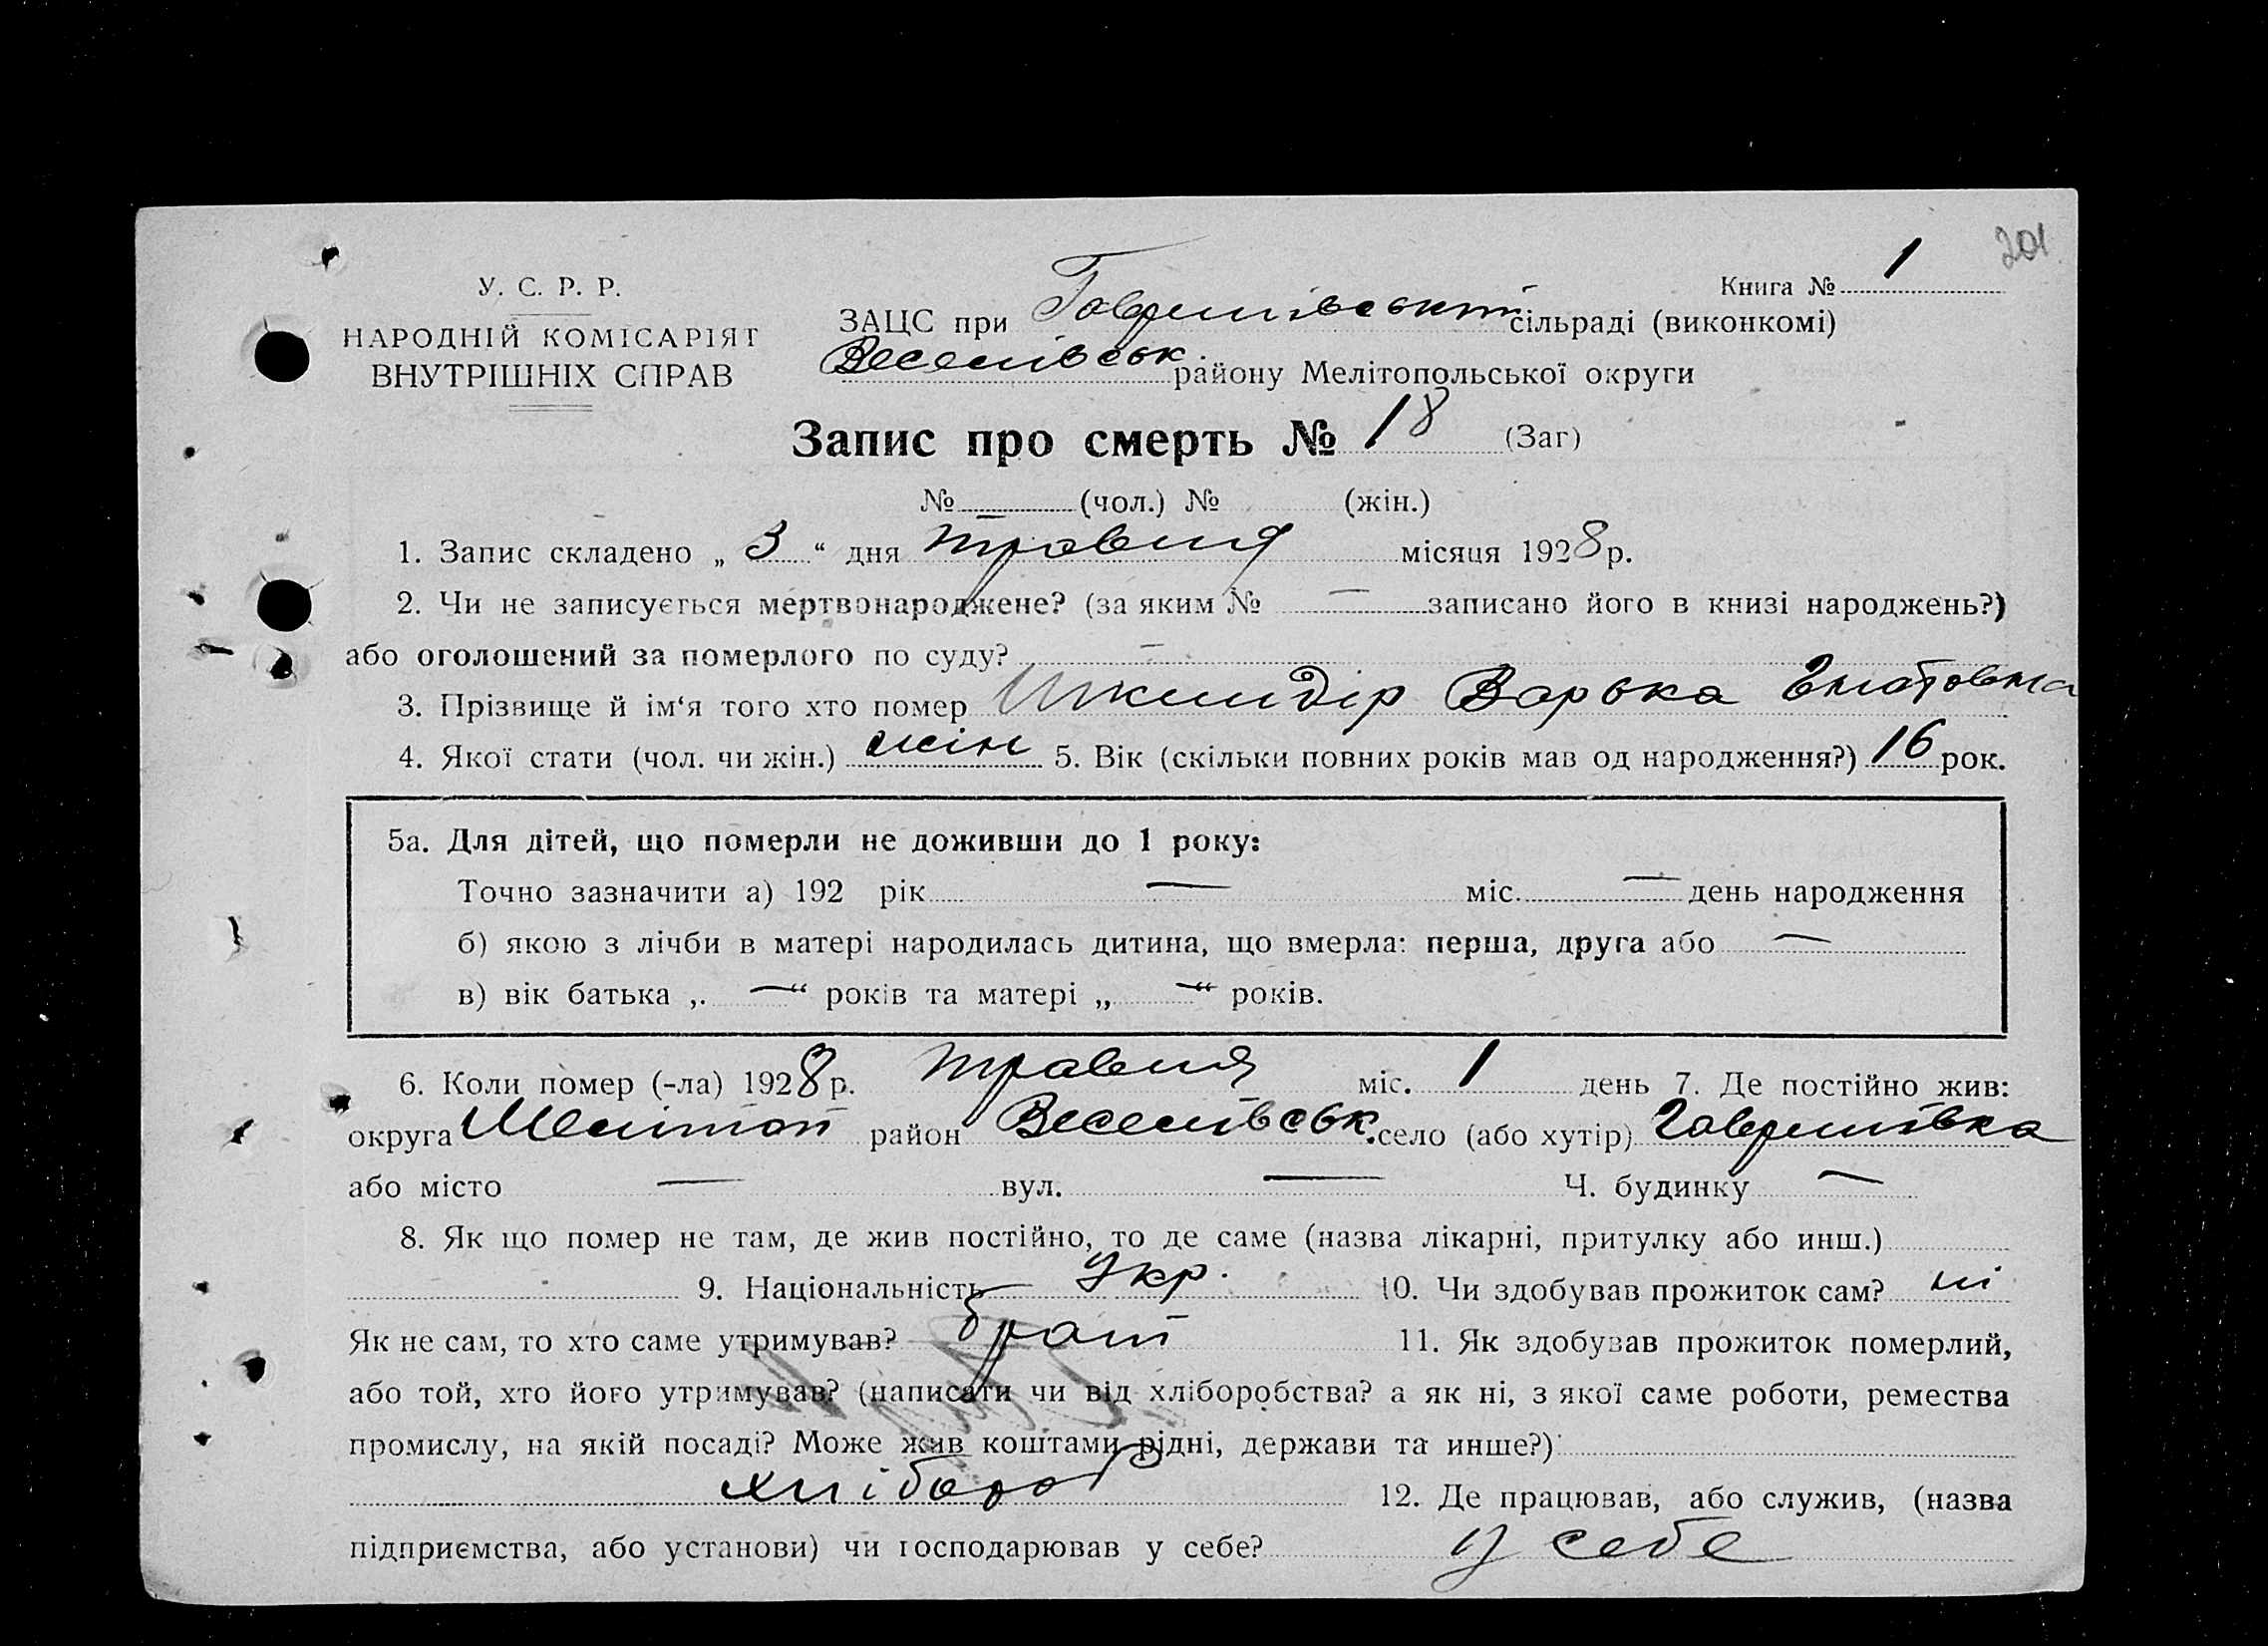 201
Книга № 1
У. С. Р. Р.
НАРОДНІЙ КОМІСАРІЯТ
ВНУТРІШНІХ СПРАВ
ЗАЦС при Гаврилівській сільраді (виконкомі)
Веселівськ. району Мелітопольської округи
Запис про смерть № 18 (Заг)
№ (чол.) № (жін.)
1. Запис складено „ 3 “ дня травня місяця 1928 р.
2. Чи не записується мертвонароджене? (за яким № — записано його в книзі народжень?)
або оголошений за померлого по суду? —
3. Прізвище й ім‘я того хто помер Шкиндір Варька
4. Якої стати (чол. чи жін.) жін 5. Вік (скільки повних років мав од народження?) 16 рок.
5а. Для дітей, що померли не доживши до 1 року:
Точно зазначити а) 192 рік — міс. — день народження
б) якою з лічби в матері народилась дитина, що вмерла: перша, друга або —
в) вік батька „ — “ років та матері „ — “ років.
6. Коли помер (-ла) 1928 р. травня міс. 1 день 7. Де постійно жив:
округа Мелітоп район Веселівськ. село (або хутір) Гаврилівка
або місто — вул. — Ч. будинку —
8. Як що помер не там, де жив постійно, то де саме (назва лікарні, притулку або инш.)
9. Національність Укр. 10. Чи здобував прожиток сам? ні
Як не сам, то хто саме утримував? брат 11. Як здобував прожиток померлий,
або той, хто його утримував? (написати чи від хліборобства? а як ні, з якої саме роботи, ремества
промислу, на якій посаді? Може жив коштами рідні, держави та инше?)
хлібороб 12. Де працював, або служив, (назва
підприємства, або установи) чи господарював у себе? у себе